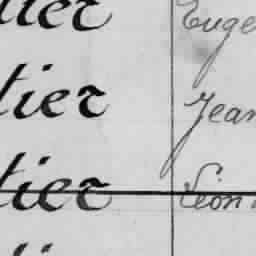 tier Euge
tier Jean
tier Léon